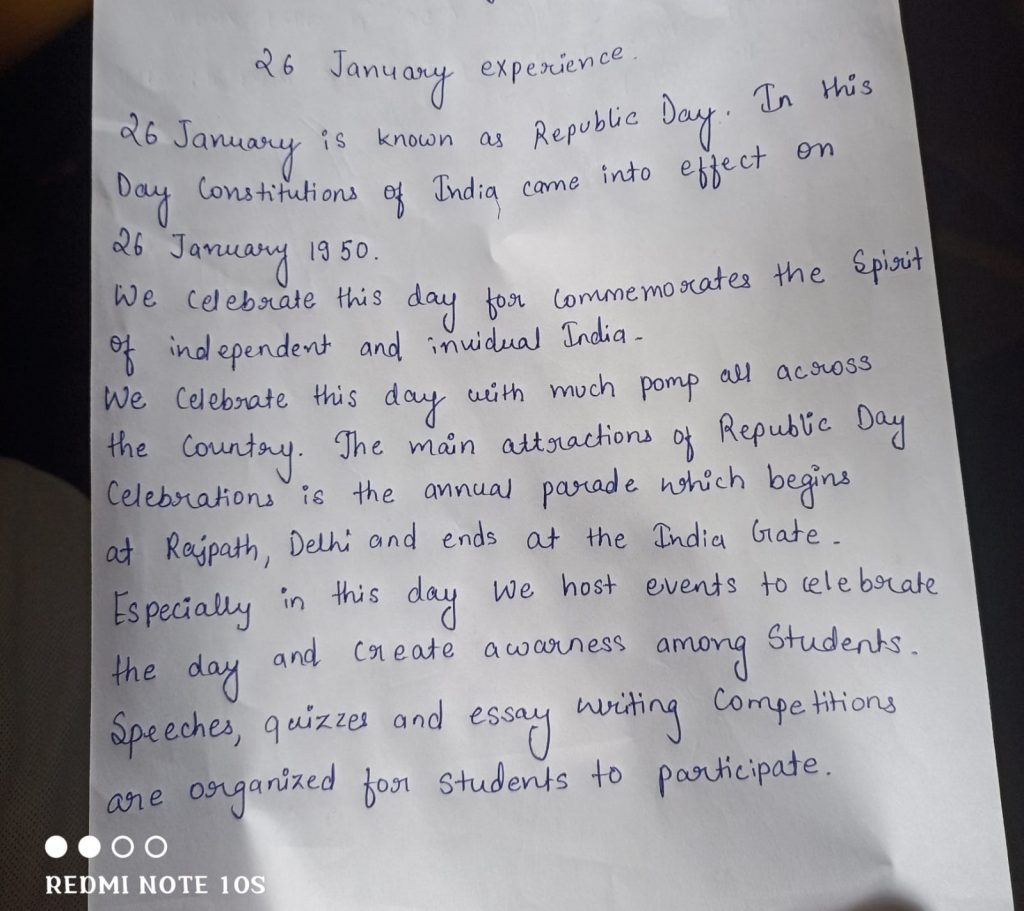 26 January experience.
26 January is known as Republic Day. In this
Day Constitutions of India came into effect on
26 January 1950.
We celebrate this day for Commemorates the Spirit
of independent and invidual India.
We Celebrate this day with much pomp all across
the Country. The main attractions of Republic Day
Celebrations is the annual parade which begins
at Rajpath, Delhi and ends at the India Gate.
Especially in this day We host events to celebrate
the day and Create awarness among Students.
Speeches, quizzes and essay writing Competitions
are organized for Students to participate.
REDMI NOTE 10S